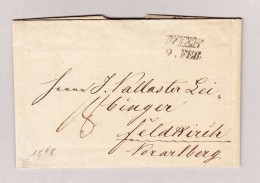 WIEN
9. FEB
Herrn J. Vallaster Lei-
binger
Feldkirch
Vorarlberg